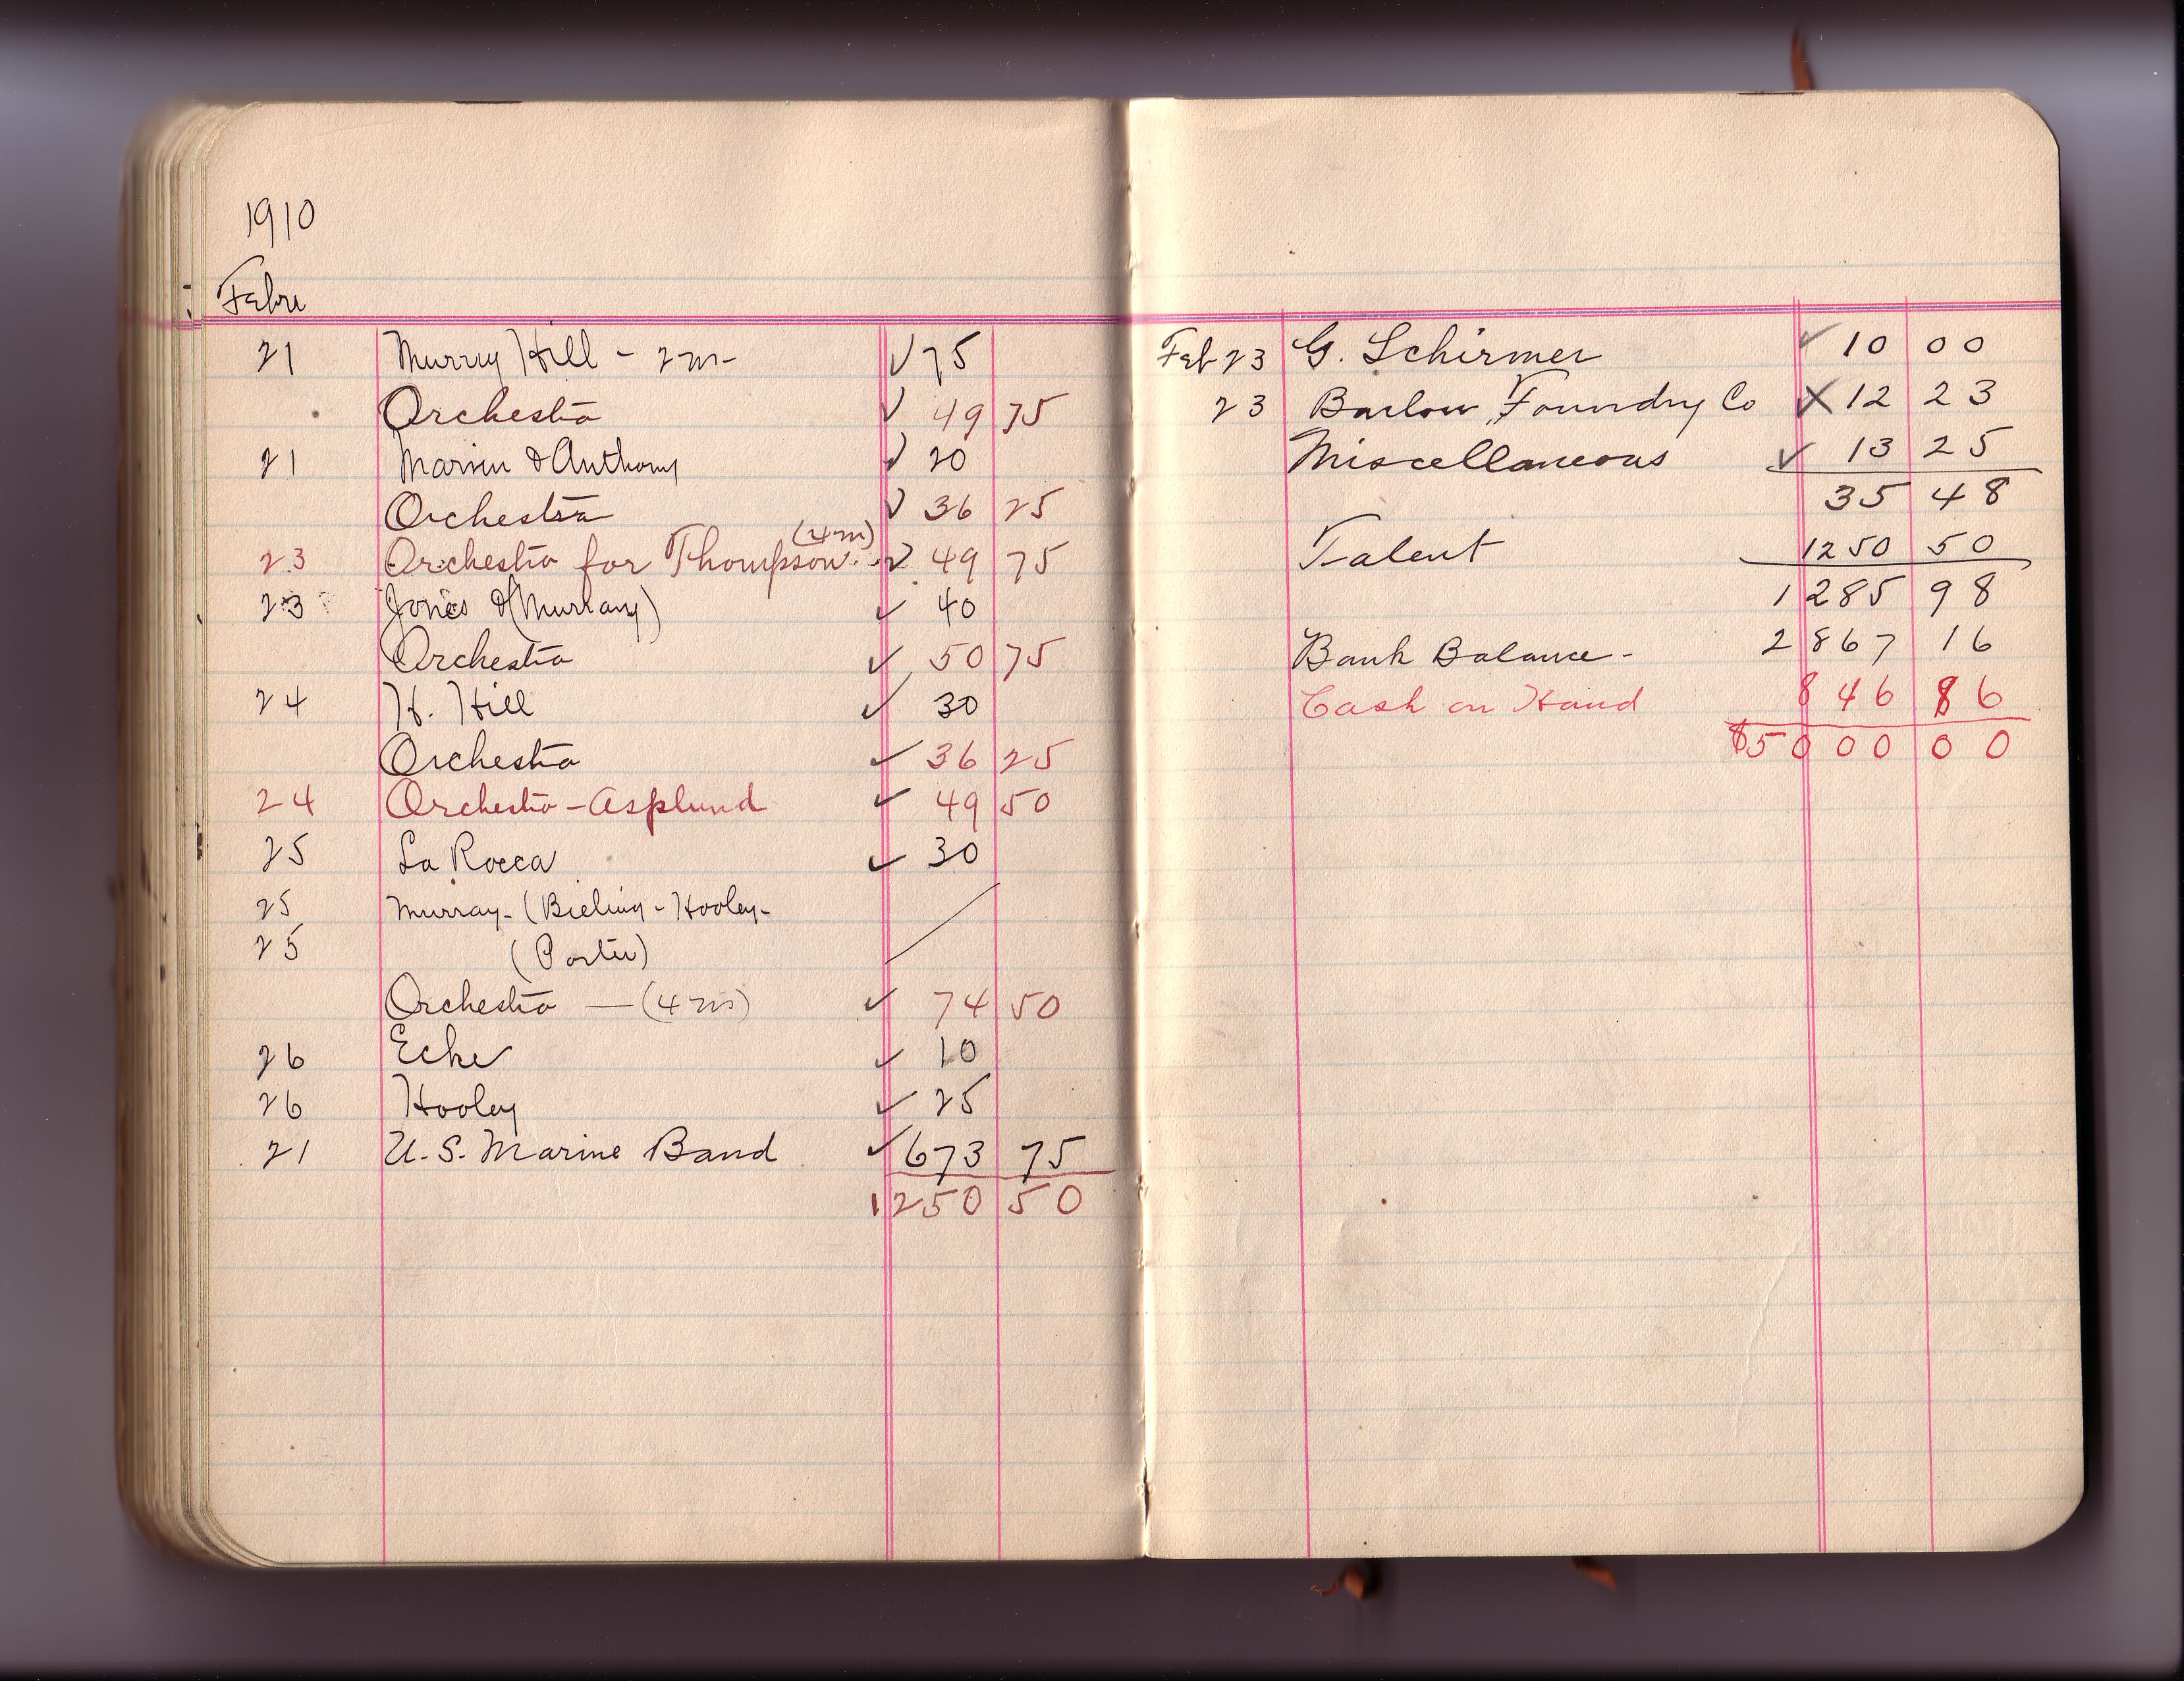 1910
Febru
21 Murry Hill - 2m- ✓ 75
Orchestra ✓ 49 75
21 Marvin & Anthony ✓ 20
Orchestra ✓ 36 25
(4m)
23 Orchestra for Thompson. ✓ 49 75
23 Jones & (Murray) ✓ 40
Orchestra ✓ 50 75
24 H. Hill ✓ 30
Orchestra ✓ 36 25
24 Orchestra - Asplund ✓ 49 50
25 La Rocca ✓ 30
25 Murray - (Bieling - Hooley -
25 (Porter)
Orchestra — (4m) ✓ 74 50
26 Ecke ✓ 10
26 Hooley ✓ 25
21 U. S. Marine Band ✓ 673 75
1250 50
Feb 23 G. Schirmer ✓ 10 00
23 Barlow Foundry Co X 12 23
Miscellaneous ✓ 13 25
35 48
Talent 1250 50
1285 98
Bank Balance - 2867 16
Cash on Hand 846 86
$5000 00